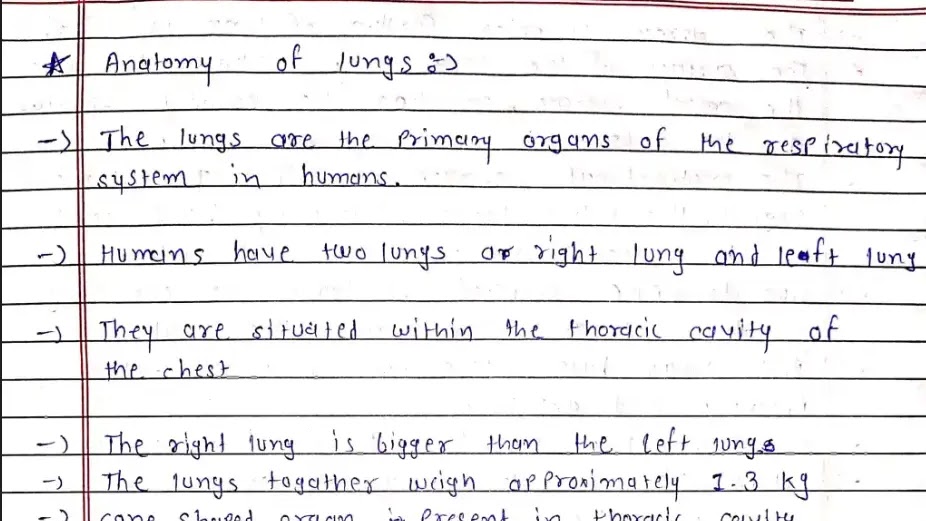 ☆ Anatomy of lungs :-)
→ The lungs are the primary organs of the respiratory
system in humans.
→ Humans have two lungs a right lung and leaft lung
→ They are situated within the thoracic cavity of
the chest
→ The right lung is bigger than the left lungs
→ The lungs togather weigh approximately 1.3 kg
→ cone shaped organ is present in thoracic cavity